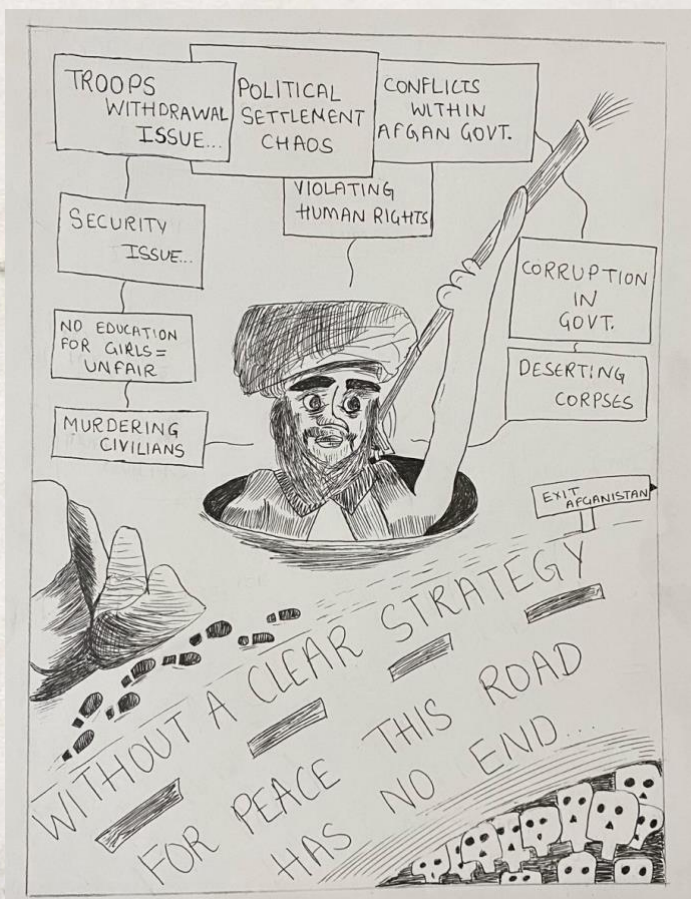 TROOPS
WITHDRAWAL
ISSUE...
POLITICAL
SETTLEMENT
CHAOS
CONFLICTS
WITHIN
AFGAN GOVT.
VIOLATING
HUMAN RIGHTS
SECURITY
ISSUE...
NO EDUCATION
FOR GIRLS=
UNFAIR
MURDERING
CIVILIANS
CORRUPTION
IN
GOVT.
DESERTING
CORPSES
EXIT
AFGANISTAN
WITHOUT A CLEAR STRATEGY
FOR PEACE THIS ROAD
HAS NO END...